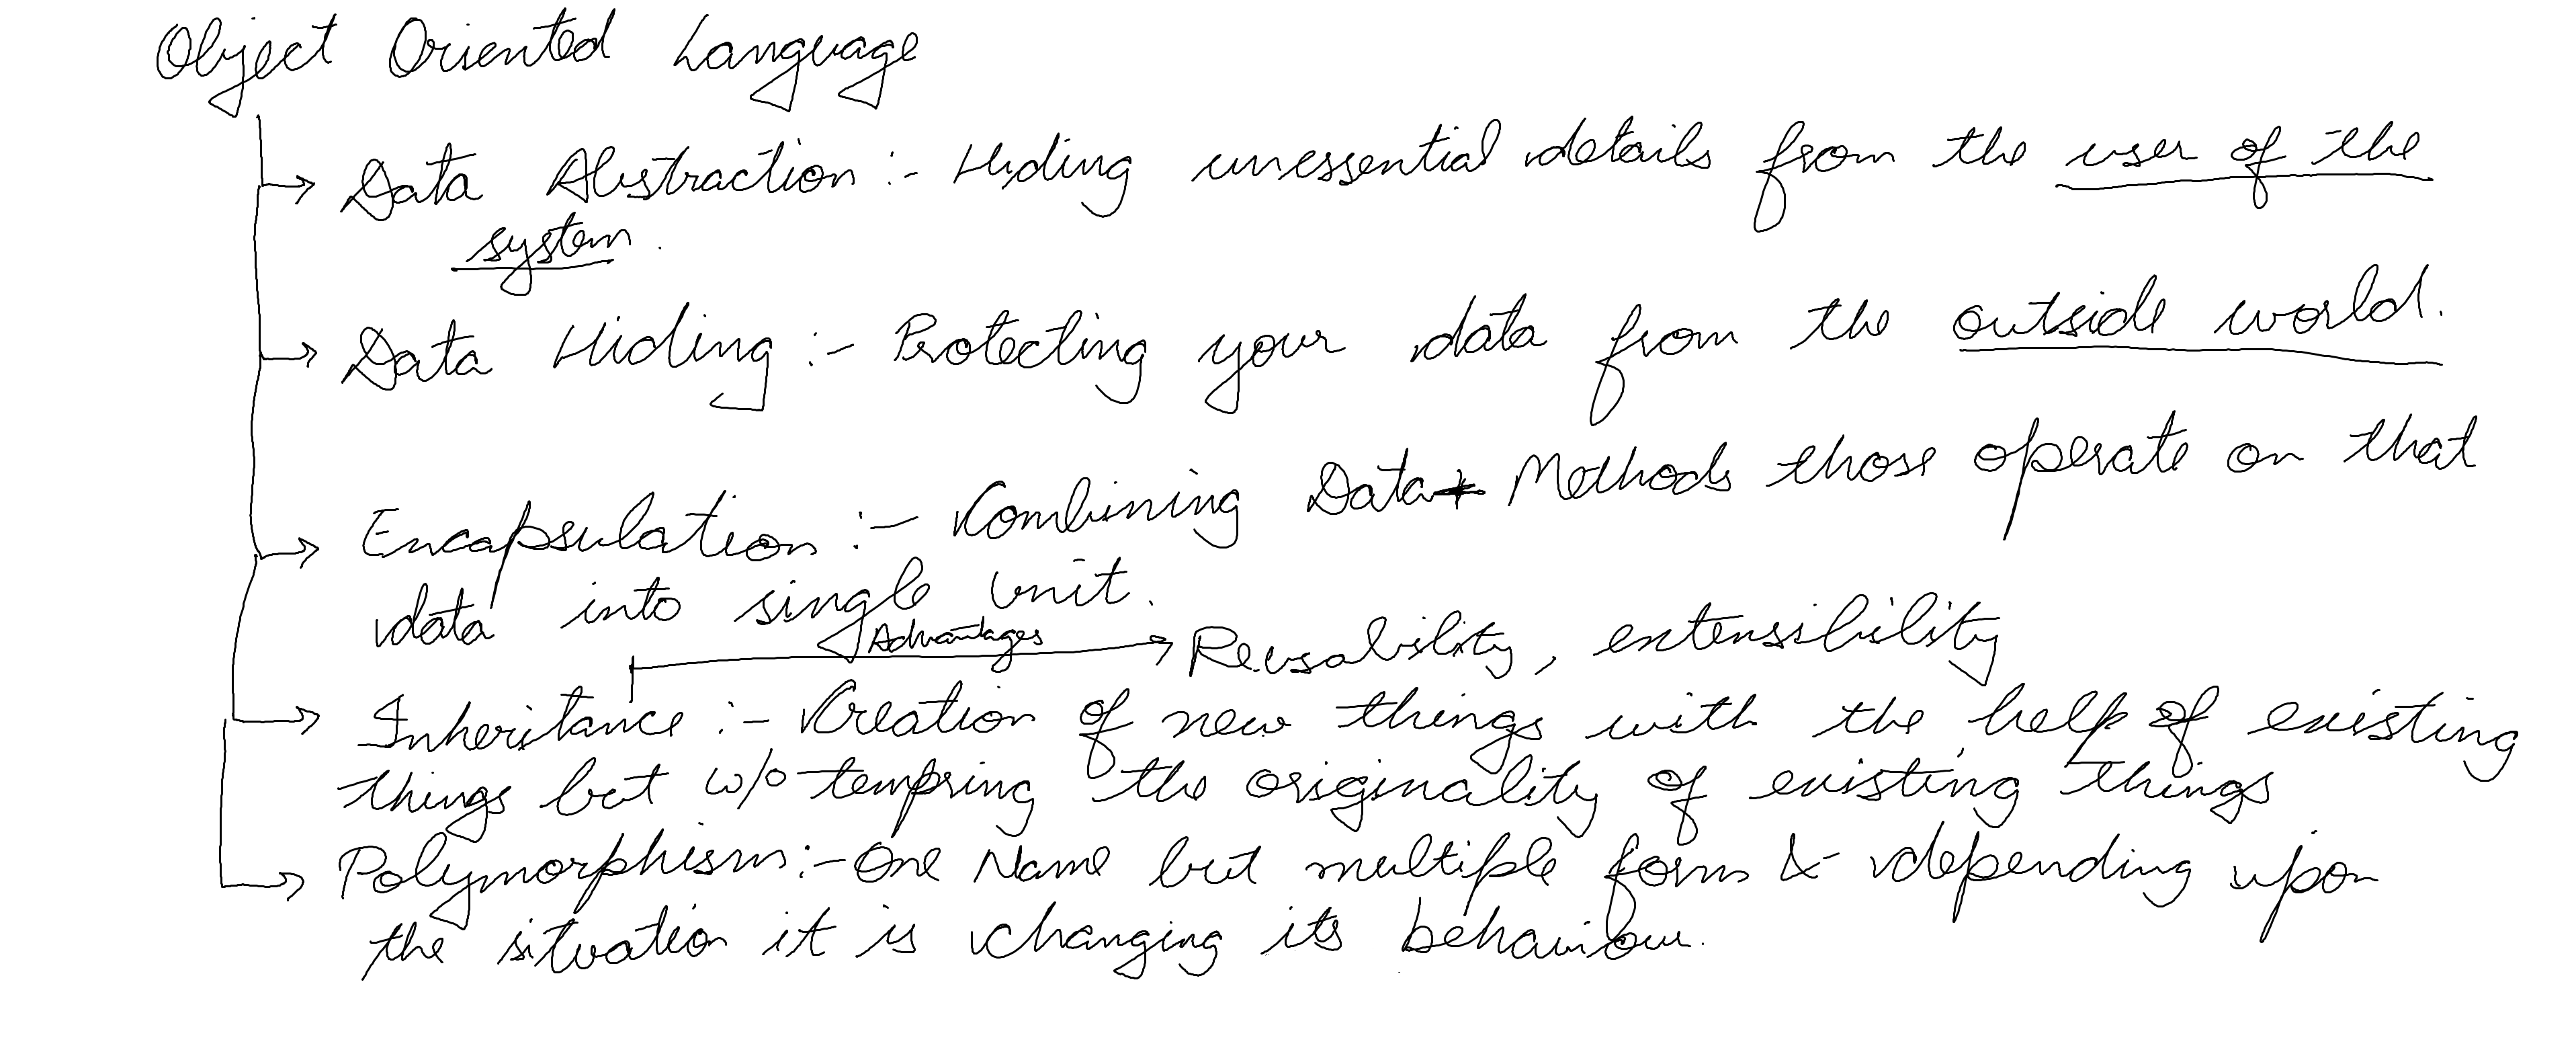 Object Oriented Language
Data Abstraction :- Hiding unessential details from the user of the
system.
Data Hiding :- Protecting your data from the outside world.
Encapsulation :- Combining Data + Methods those operate on that
data into single unit.
Advantages Reusability, extensibility
Inheritance :- Creation of new things with the help of existing
things but w/o tempring the originality of existing things
Polymorphism :- One Name but multiple form & depending upon
the situation it is changing its behaviour.